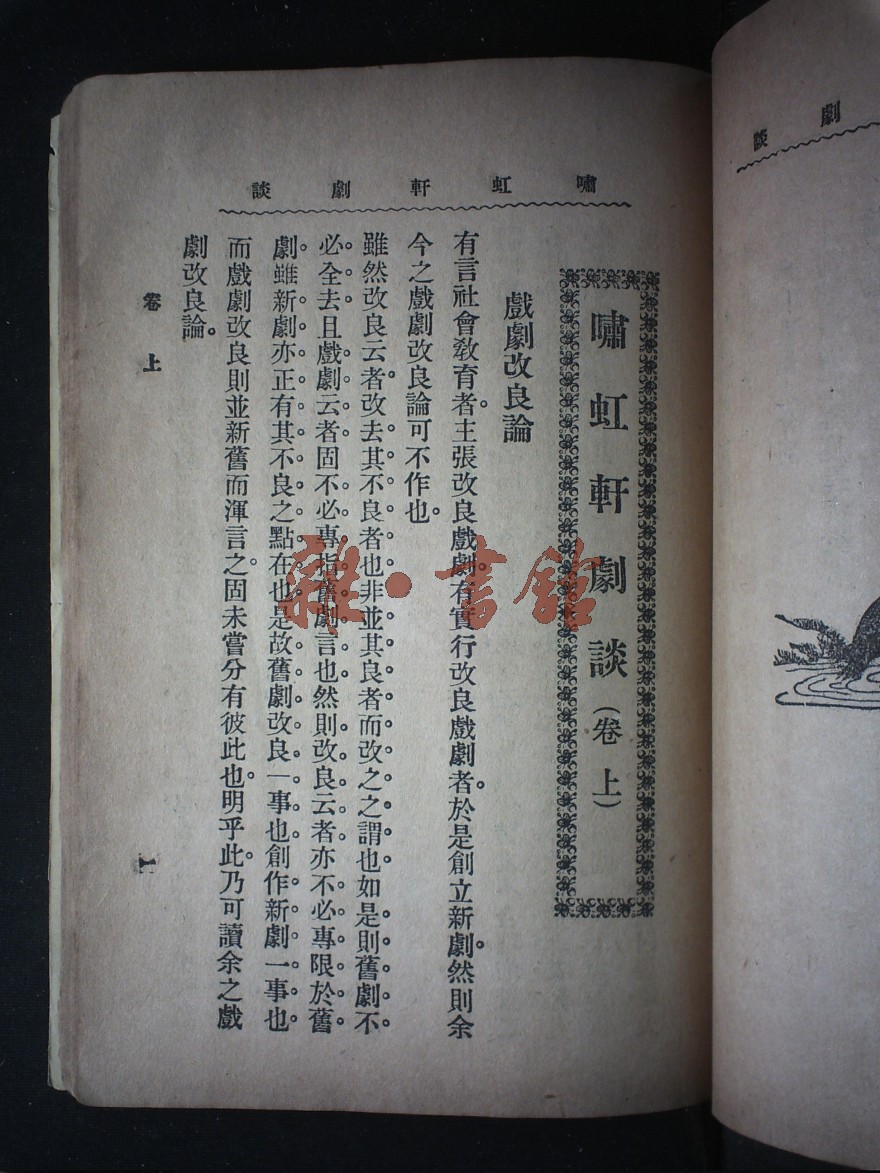 嘯虹軒劇談
嘯虹軒劇談（卷上）
戲劇改良論
有言社會教育者。主張改良戲劇。有實行改良戲劇者。於是創立新劇。然則余
今之戲劇改良論可不作也。
雖然改良云者。改去其不良者也。非並其良者而改之之謂也。如是則舊劇不
必全去。且戲劇云者。固不必專指舊劇言也。然則改良云者。亦不必專限於舊
劇。雖新劇亦正有其不良之點在也。是故舊劇改良一事也。創作新劇一事也。
而戲劇改良則並新舊而渾言之。固未嘗分有彼此也。明乎此。乃可讀余之戲
劇改良論。
卷上
一
劇談
雜·書館